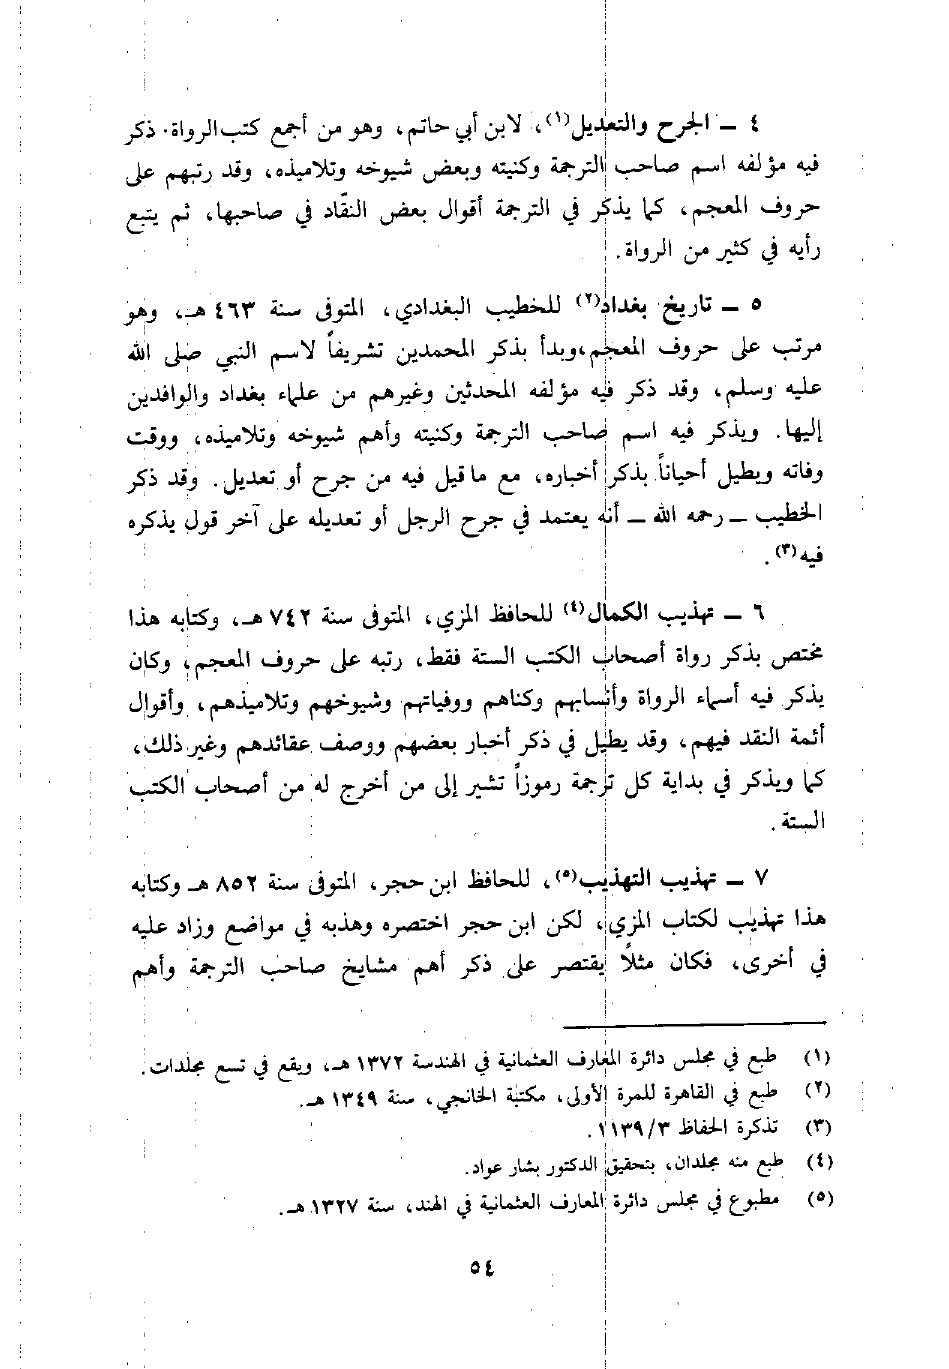 ٤ ــ الجرح والتعديل(١)، لابن أبي حاتم، وهو من أجمع كتب الرواة. ذكر
فيه مؤلفه اسم صاحب الترجمة وكنيته وبعض شيوخه وتلاميذه، وقد رتبهم على
حروف المعجم، كما يذكر في الترجمة أقوال بعض النقّاد في صاحبها، ثم يتبع
رأيه في كثير من الرواة.
٥ ــ تاريخ بغداد(٢) للخطيب البغدادي، المتوفى سنة ٤٦٣ هـ، وهو
مرتب على حروف المعجم، وبدأ بذكر المحمدين تشريفاً لاسم النبي صلى الله
عليه وسلم، وقد ذكر فيه مؤلفه المحدثين وغيرهم من علماء بغداد والوافدين
إليها. ويذكر فيه اسم صاحب الترجمة وكنيته وأهم شيوخه وتلاميذه، ووقت
وفاته ويطيل أحياناً بذكر أخباره، مع ما قيل فيه من جرح أو تعديل. وقد ذكر
الخطيب ــ رحمه الله ــ أنه يعتمد في جرح الرجل أو تعديله على آخر قول يذكره
فيه(٣).
٦ ــ تهذيب الكمال(٤) للحافظ المزي، المتوفى سنة ٧٤٢ هـ، وكتابه هذا
مختص بذكر رواة أصحاب الكتب الستة فقط، رتبه على حروف المعجم، وكان
يذكر فيه أسماء الرواة وأنسابهم وكناهم ووفياتهم وشيوخهم وتلاميذهم، وأقوال
أئمة النقد فيهم، وقد يطيل في ذكر أخبار بعضهم ووصف عقائدهم وغير ذلك،
كما ويذكر في بداية كل ترجمة رموزاً تشير إلى من أخرج له من أصحاب الكتب
الستة.
٧ ــ تهذيب التهذيب(٥)، للحافظ ابن حجر، المتوفى سنة ٨٥٢ هـ وكتابه
هذا تهذيب لكتاب المزي، لكن ابن حجر اختصره وهذبه في مواضع وزاد عليه
في أخرى، فكان مثلاً يقتصر على ذكر أهم مشايخ صاحب الترجمة وأهم
(١) طبع في مجلس دائرة المعارف العثمانية في الهندسة ١٣٧٢ هـ، ويقع في تسع مجلدات.
(٢) طبع في القاهرة للمرة الأولى، مكتبة الخانجي، سنة ١٣٤٩ هـ.
(٣) تذكرة الحفاظ ١١٣٩/٣.
(٤) طبع منه مجلدان، بتحقيق الدكتور بشار عواد.
(٥) مطبوع في مجلس دائرة المعارف العثمانية في الهند، سنة ١٣٢٧ هـ.
٥٤